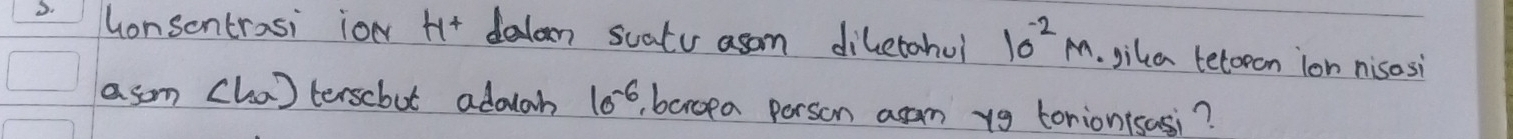 5. Konsentrasi ion H+ dalam suatu asam diketahui 10⁻² M. jika tetapan ion nisasi
asam (ka) tersebut adalah 10⁻⁶, berapa persen asam yg terionisasi?